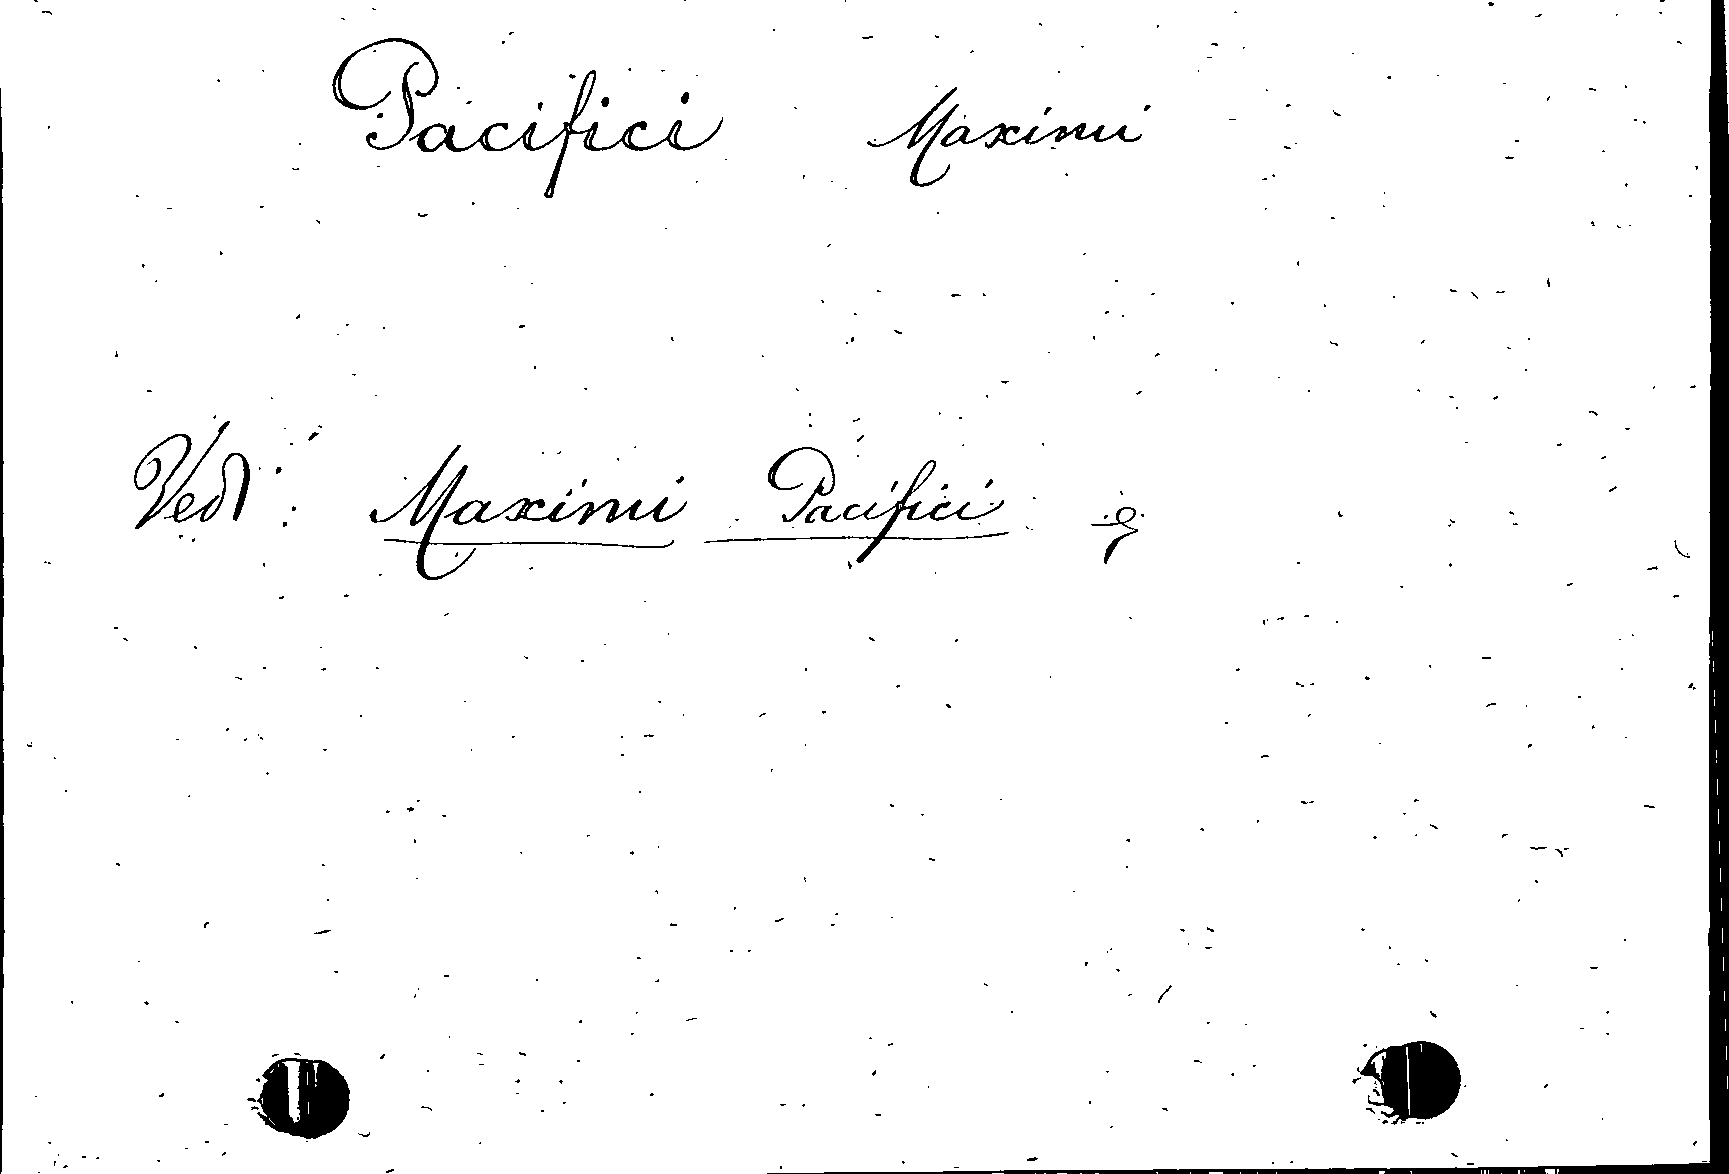 Pacifici Maximi
Vedi: Maximi Pacifici